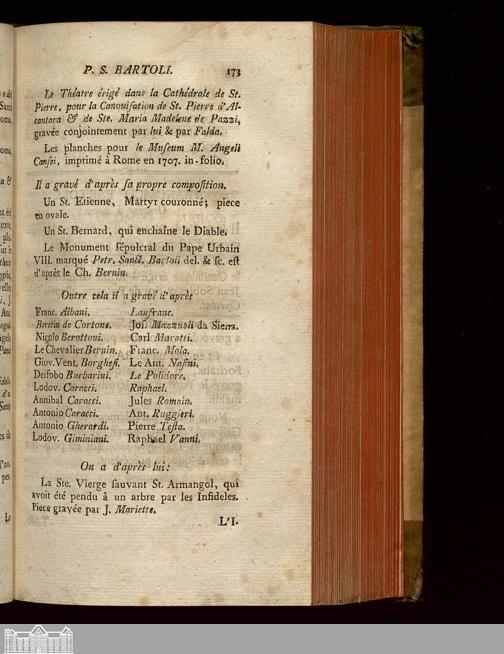 P. S. BARTOLI. 173
Le Théatre érigé dans la Cathédrale de St.
Pierre, pour la Canonisation de St. Pierre d'Al-
cantara & de Ste. Maria Madelene de Pazzi,
gravée conjointement par lui & par Falda.
Les planches pour le Museum M. Angeli
Causei, imprimé à Rome en 1707. in-folio.
Il a gravé d'après sa propre composition.
Un St. Etienne, Martyr couronné; piece
en ovale.
Un St. Bernard, qui enchaîne le Diable.
Le Monument sépulcral du Pape Urbain
VIII. marqué Petr. Sanct. Bartoli del. & sc. est
d'après le Ch. Bernin.
Outre cela il a gravé d'après
Franc. Albani. Lanfranc.
Bertin de Cortone. Jos. Mazzuoli da Siena.
Nicolo Berottoni. Carl Maratti.
Le Chevalier Bernin. Franc. Mola.
Giov. Vent. Borghesi. Le Ant. Nasini.
Deifobo Burbarini. Le Polidore.
Lodov. Caracci. Raphael.
Annibal Caracci. Jules Romain.
Antonio Caracci. Ant. Ruggieri.
Antonio Gherardi. Pierre Testa.
Lodov. Giminiani. Raphael Vanni.
On a d'après lui:
La Ste. Vierge sauvant St. Armangol, qui
avoit été pendu à un arbre par les Infideles.
Piece gravée par J. Mariette.
L'I-